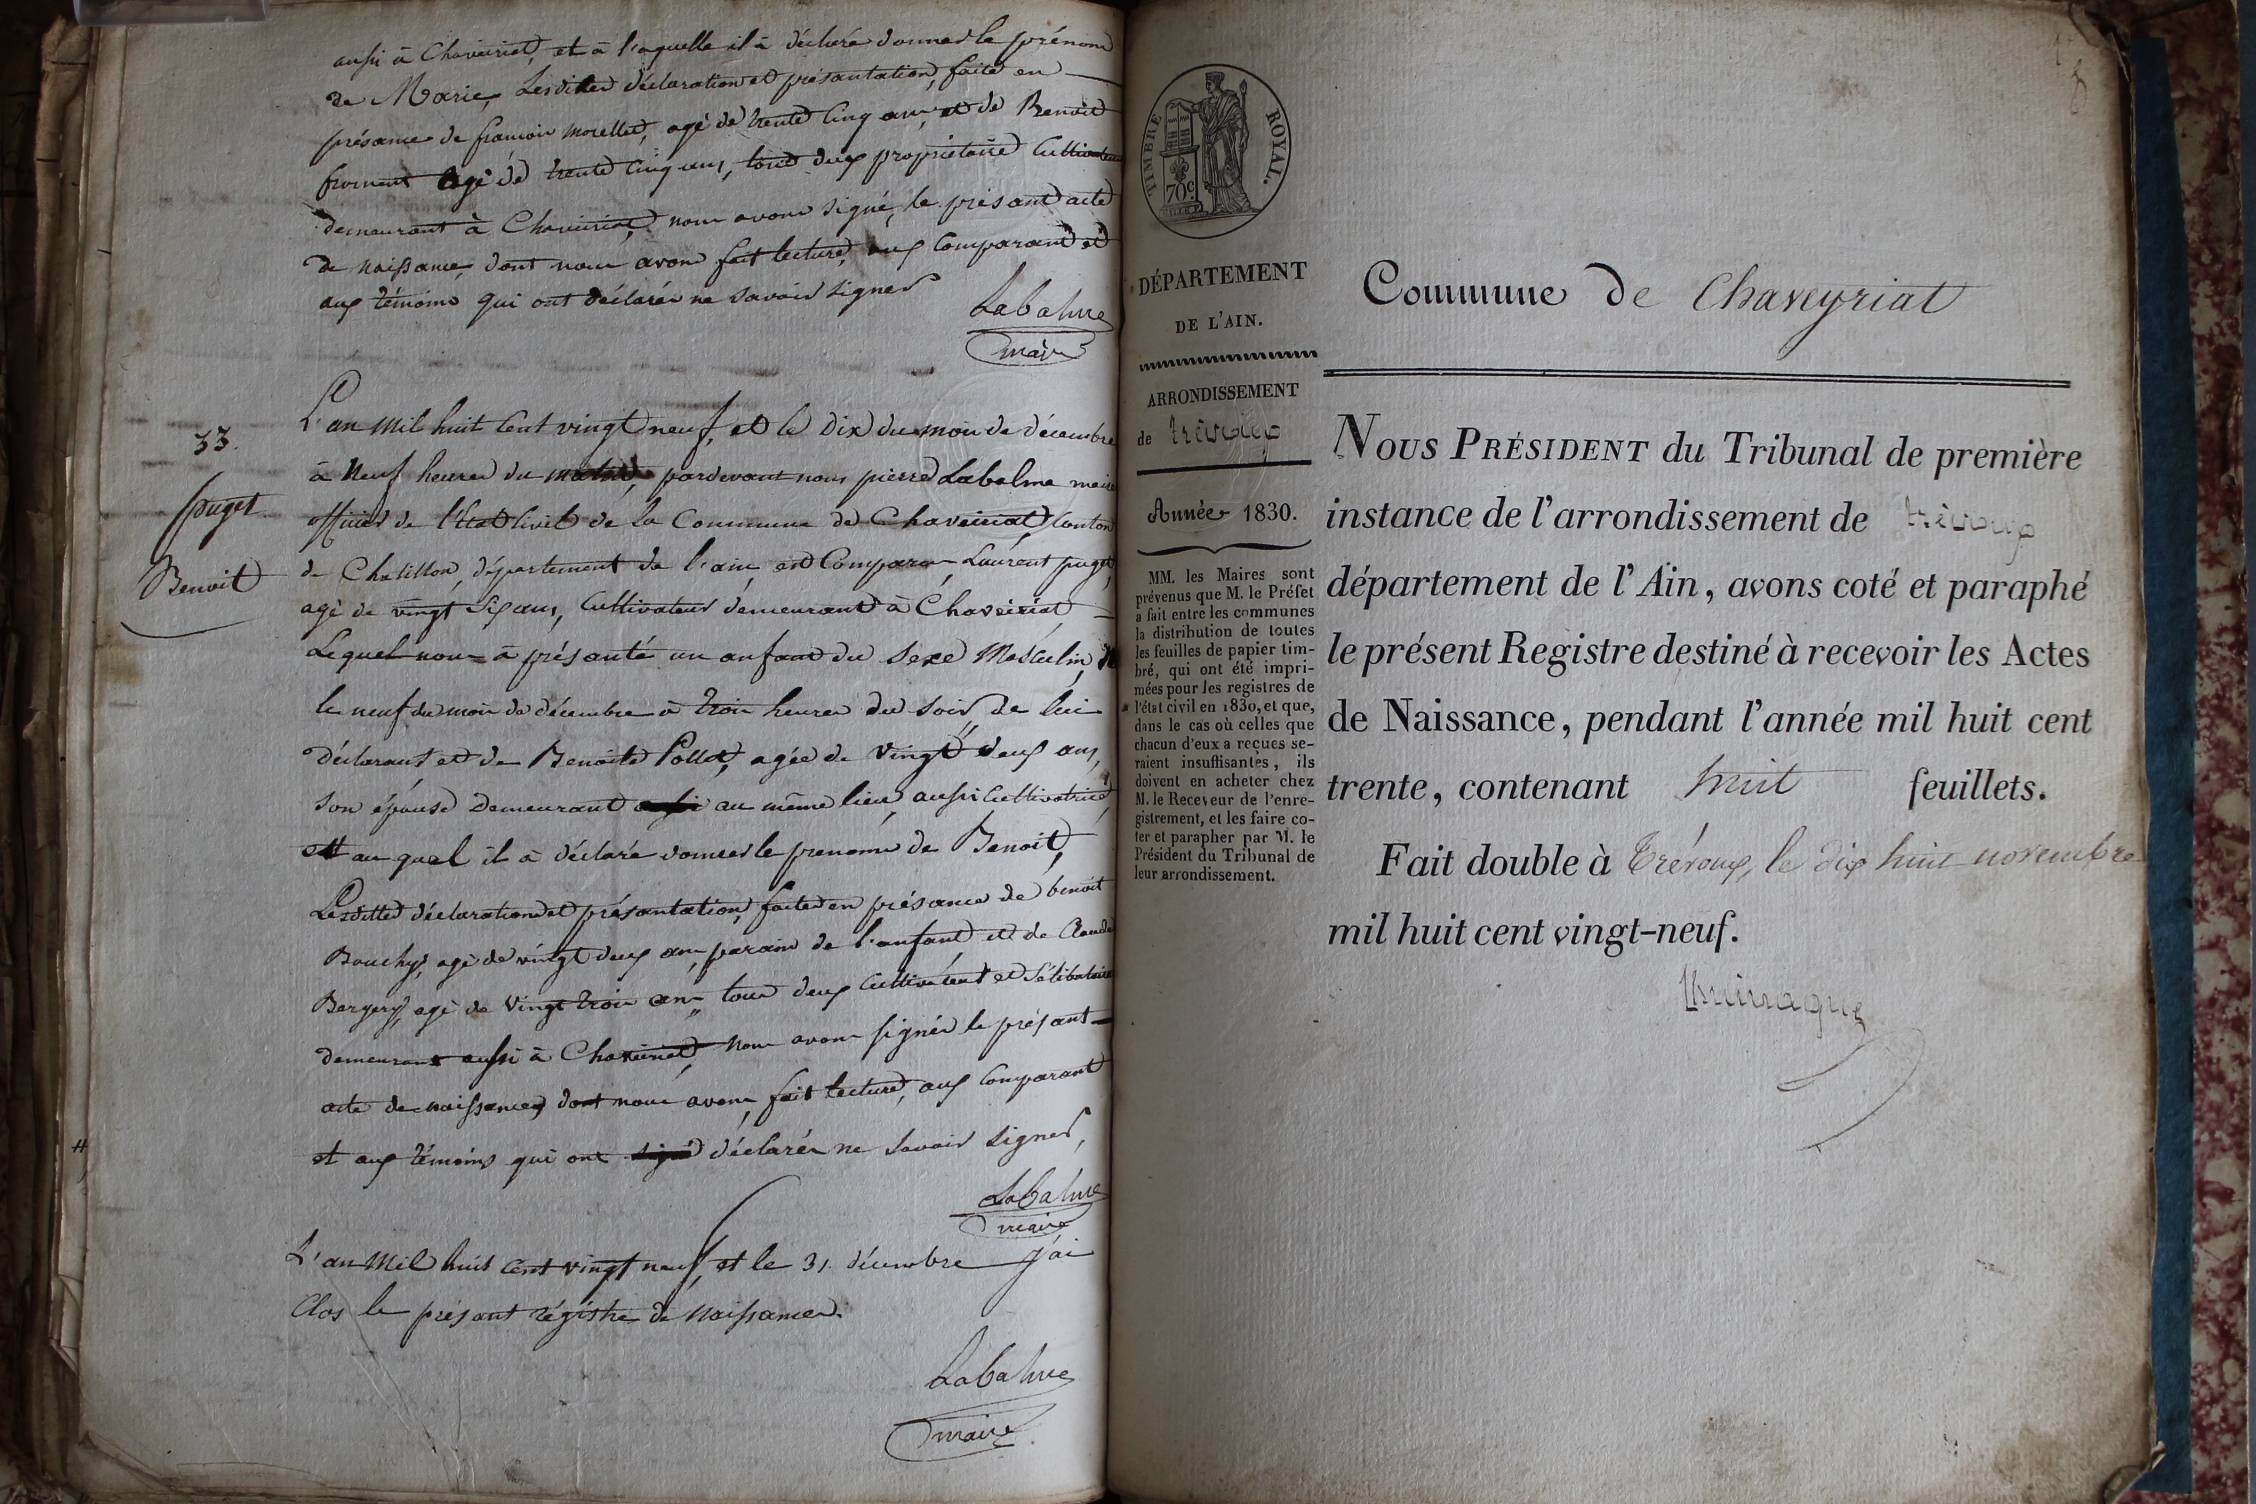 aussi à Chaveiriat, et à l'aquelle il à déclaré donner le prénom
de Marie, Lesdites déclaration et présantation, faite en
présance de françois morellet, agé de trente Cinq ans, et de Benoit
froment agé de trente cinq ans, tous deux propriétaire Cultivateur
demeurant à Chaveiriat, nous avons signé, le présant acte
de naissance, dont nous avons fait lecture, aux Comparant et
aux témoins qui ont déclarés ne savoir signer
Labalme
maire
33.
puget
Benoit
L'an mil huit Cent vingt neuf, et le dix du mois de décembre
à Neuf heures du matin, pardevant nous pierre Labalme maire
officier de l'Etat Civil de la Commune de Chaveiriat Canton
de Chatillon, département de l'ain, est Comparu Laurent puget,
agé de vingt Six ans, Cultivateur demeurant à Chaveiriat,
Lequel nous à présanté un anfant du Sexe Masculin, né
le neuf du mois de décembre à trois heures du soir, de lui
déclarant et de Benoite Pollet, agée de vingt deux ans,
son épouse Demeurant au même lieu, aussi Cultivatrice,
et au quel il à déclaré donner le prenome de Benoit,
Lesdittes déclaration et présantation, faites en présance de benoit
Bouchy, agé de vingt deux ans, parain de l'anfant, et de Claude
Bergery, agé de Vingt trois ans, tous deux Cultivateur et Sélibataire
demeurant aussi à Chaveiriat, Nous avons signés le présant
acte de naissances, dont nous avons fait lecture, aux Comparant
et aux témoins qui ont signé déclarés ne savoir signer,
Labalme
maire
L'an Mil huit cent vingt neuf, et le 31 décembre j'ai
Clos le présant régistre de naissances.
Labalme
maire
8
TIMBRE ROYAL.
70c.
DÉPARTEMENT
DE L'AIN.
ARRONDISSEMENT
de trévoux
Année 1830.
MM. les Maires sont
prévenus que M. le Préfet
a fait entre les communes
la distribution de toutes
les feuilles de papier tim-
bré, qui ont été impri-
mées pour les registres de
l'état civil en 1830, et que,
dans le cas où celles que
chacun d'eux a reçues se-
raient insuffisantes, ils
doivent en acheter chez
M. le Receveur de l'enre-
gistrement, et les faire co-
ter et parapher par M. le
Président du Tribunal de
leur arrondissement.
Commune de Chaveyriat
NOUS PRÉSIDENT du Tribunal de première
instance de l'arrondissement de trévoux
département de l'Ain, avons coté et paraphé
le présent Registre destiné à recevoir les Actes
de Naissance, pendant l'année mil huit cent
trente, contenant huit feuillets.
Fait double à Trévoux, le dix huit novembre
mil huit cent vingt-neuf.